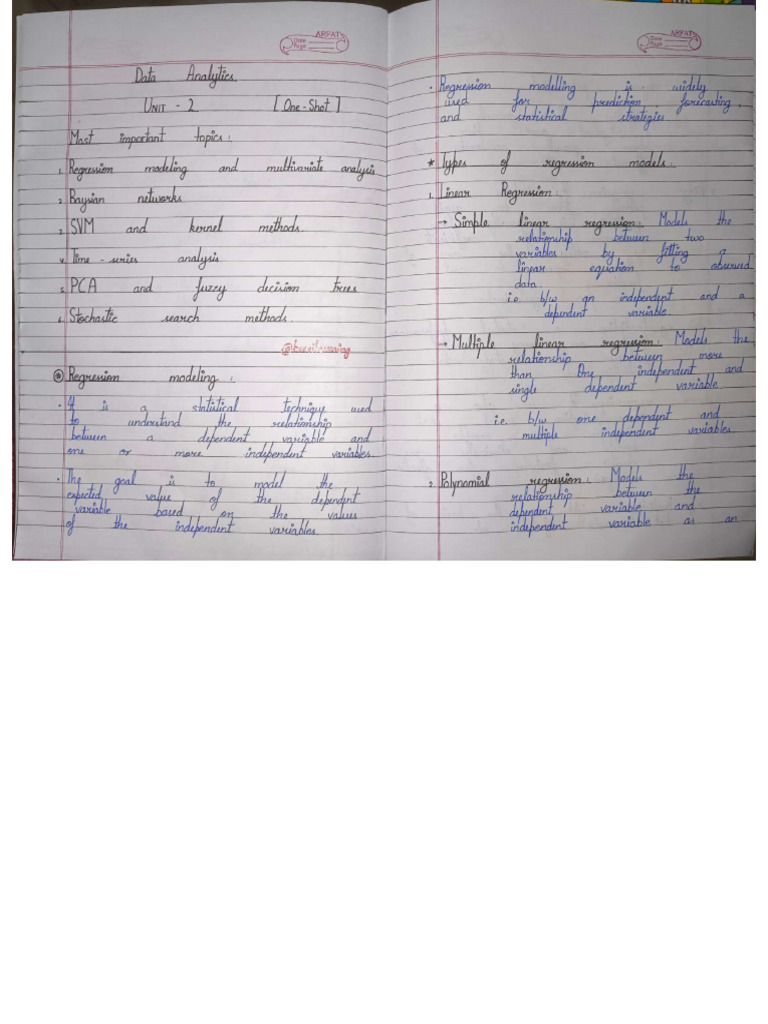 ARFAT
Date
Page
Data Analytics
UNIT - 2 [One-Shot]
Most important topics:
1. Regression modeling and multivariate analysis
2. Baysian networks
3. SVM and kernel methods.
4. Time-series analysis
5. PCA and fuzzy decision trees
6. Stochastic search methods.
* Regression modeling:
• It is a statistical technique used
to understand the relationship
between a dependent variable and
one or more independent variables.
• The goal is to model the
expected value of the dependent
variable based on the values
of the independent variables.
ARFAT
Date
Page
• Regression modelling is widely
used for prediction, forecasting,
and statistical strategies
* Types of regression models:
1. Linear Regression:
→ Simple linear regression: Models the
relationship between two
variables by fitting a
linear equation to observed
data
i.e. b/w an independent and a
dependent variable.
→ Multiple linear regression: Models the
relationship between more
than One independent and
single dependent variable.
i.e. b/w one dependent and
multiple independent variables.
2. Polynomial regression: Models the
relationship between the
dependent variable and
independent variable as an